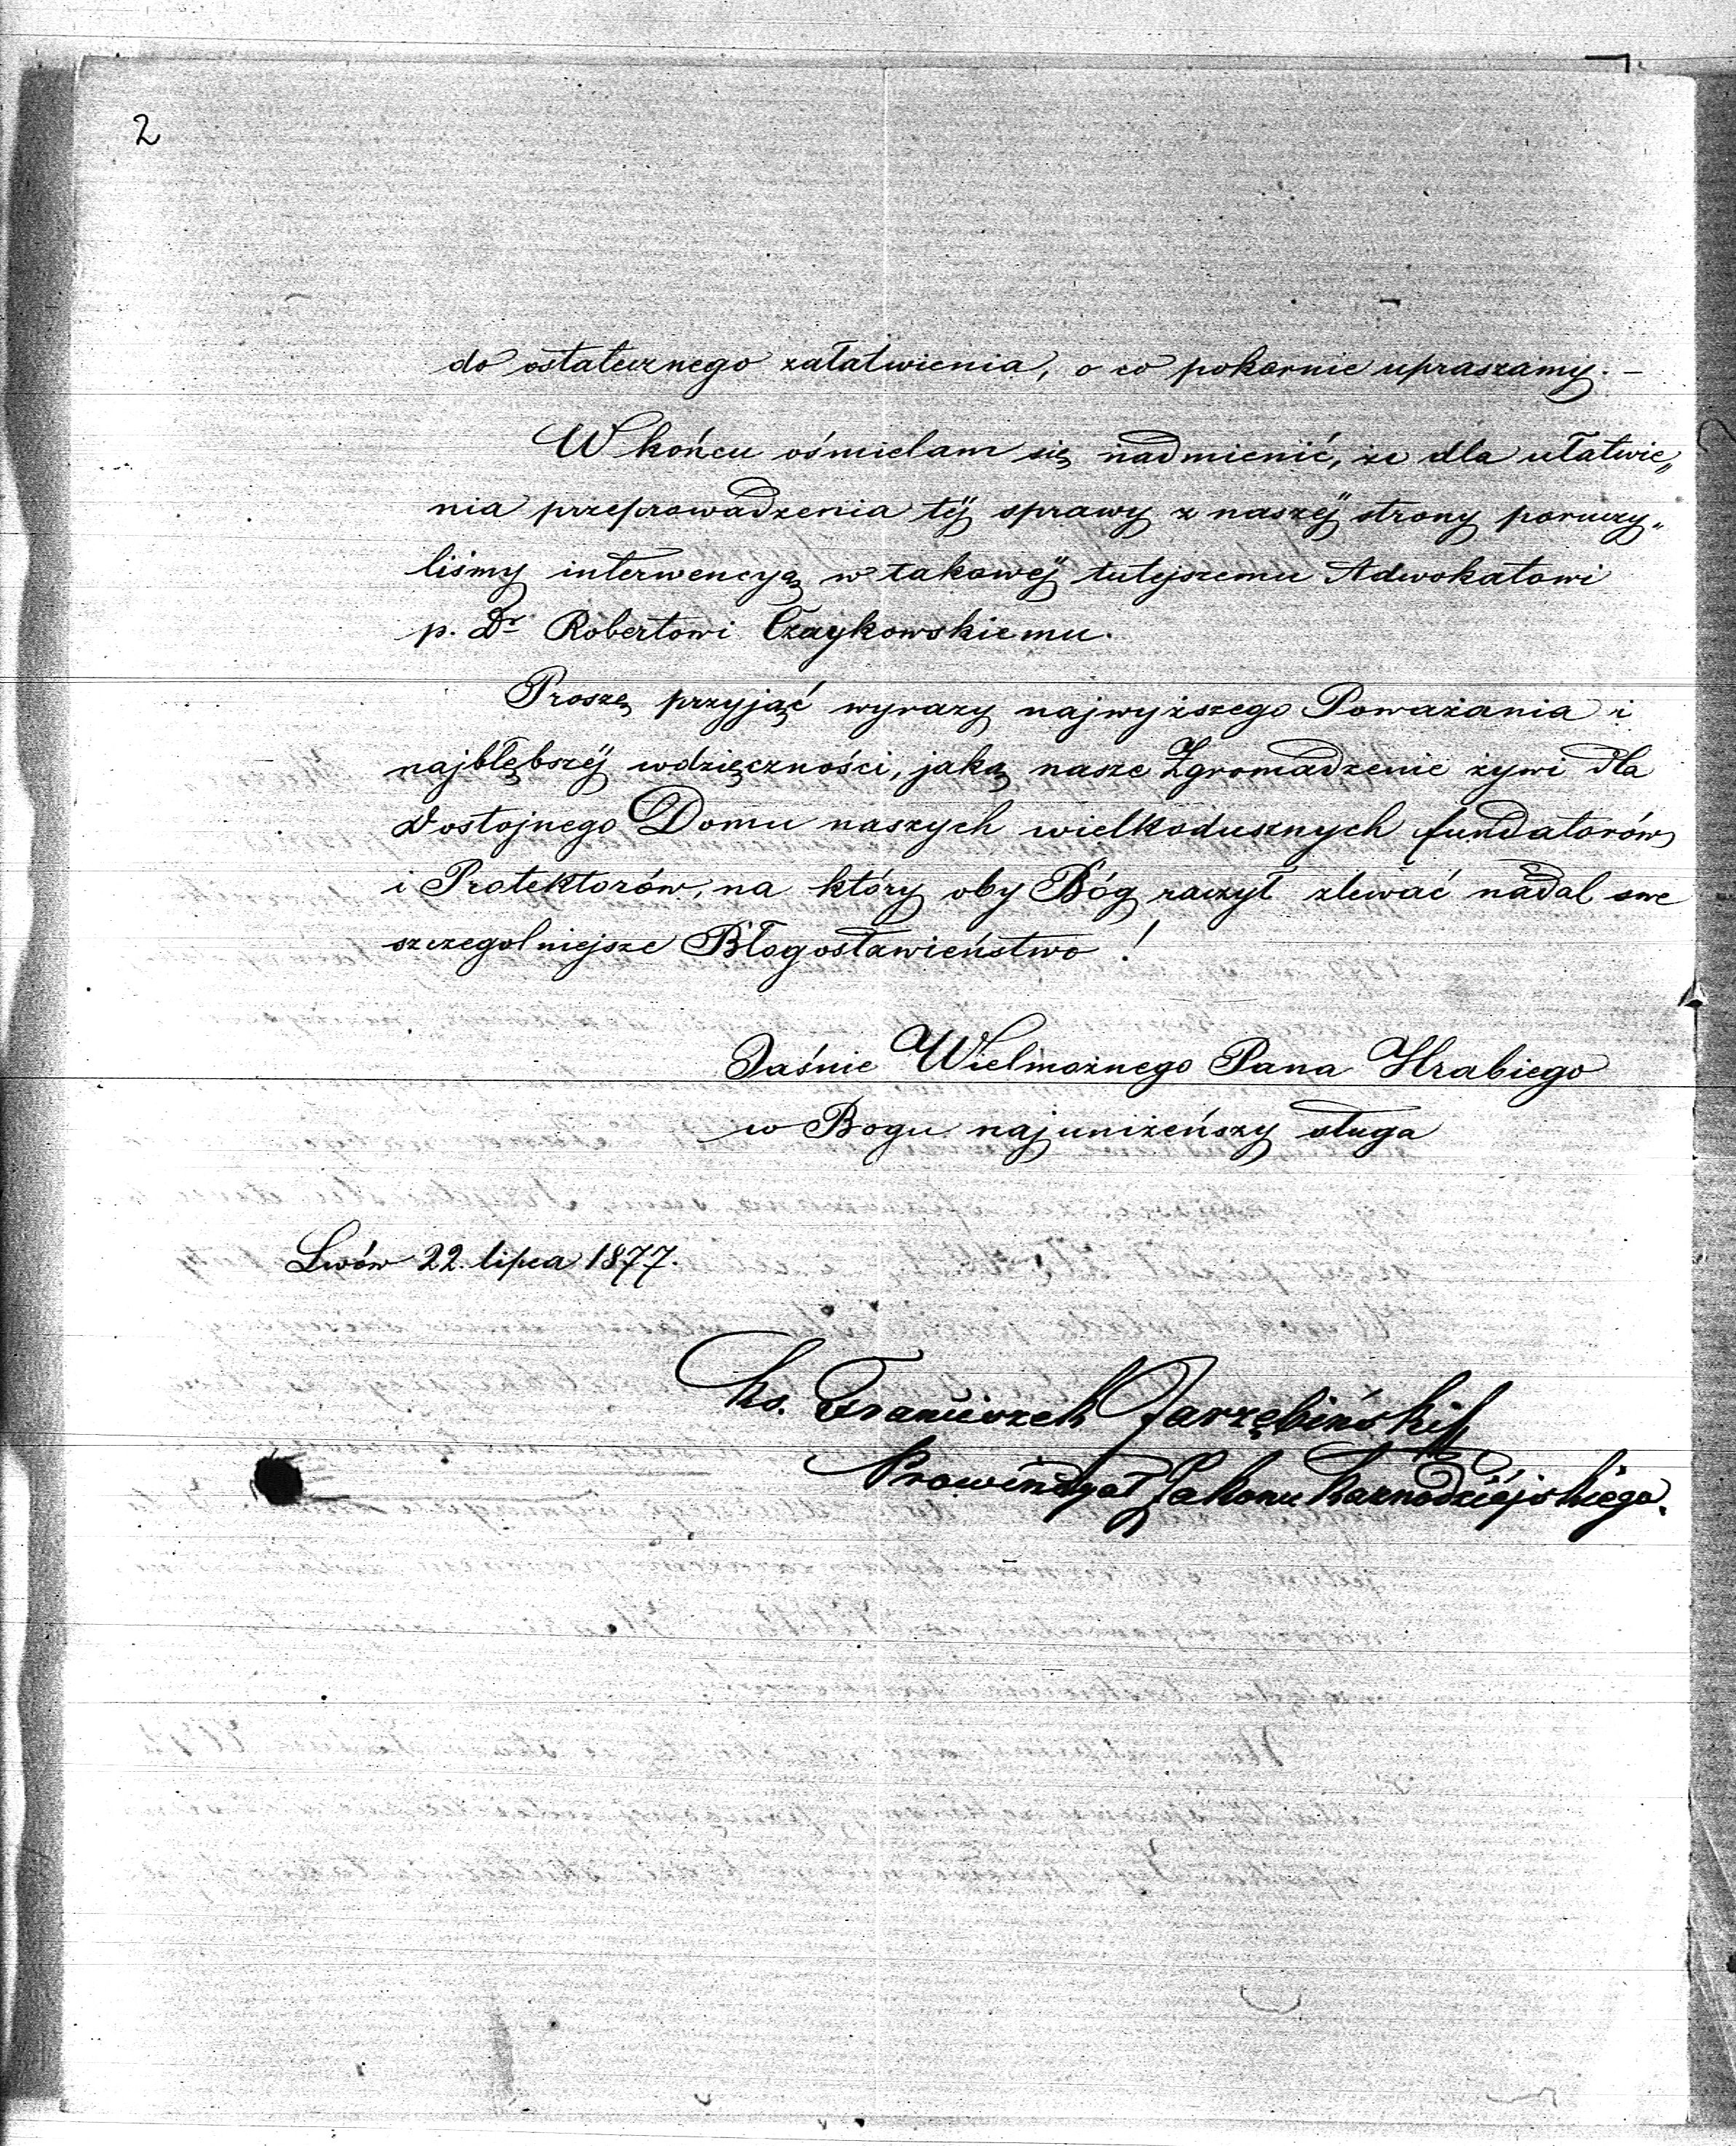 2
do ostatecznego załatwienia, o co pokornie upraszamy. –
W końcu ośmielam się nadmienić, że dla ułatwie„
nia przeprowadzenia téj sprawy z naszéj strony poruczy„
liśmy interwencyą w takowéj tutejszemu Adwokatowi
p. Dr Robertowi Czaykowskiemu.
Proszę przyjąć wyrazy najwyższego Poważania i
najbłębszéj wdzięczności, jaką nasze Zgromadzenie żywi dla
Dostojnego Domu naszych wielkodusznych fundatorów
i Protektorów, na który oby Bóg raczył zlewać nadal swe
szczegolniejsze Błogosławieństwo!
Jaśnie Wielmożnego Pana Hrabiego
w Bogu najuniżeńszy sługa
Lwów 22. lipca 1877.
Ks. Franciszek Jarzębiński
Prowincyał Zakonu Kaznodziéjskiego.